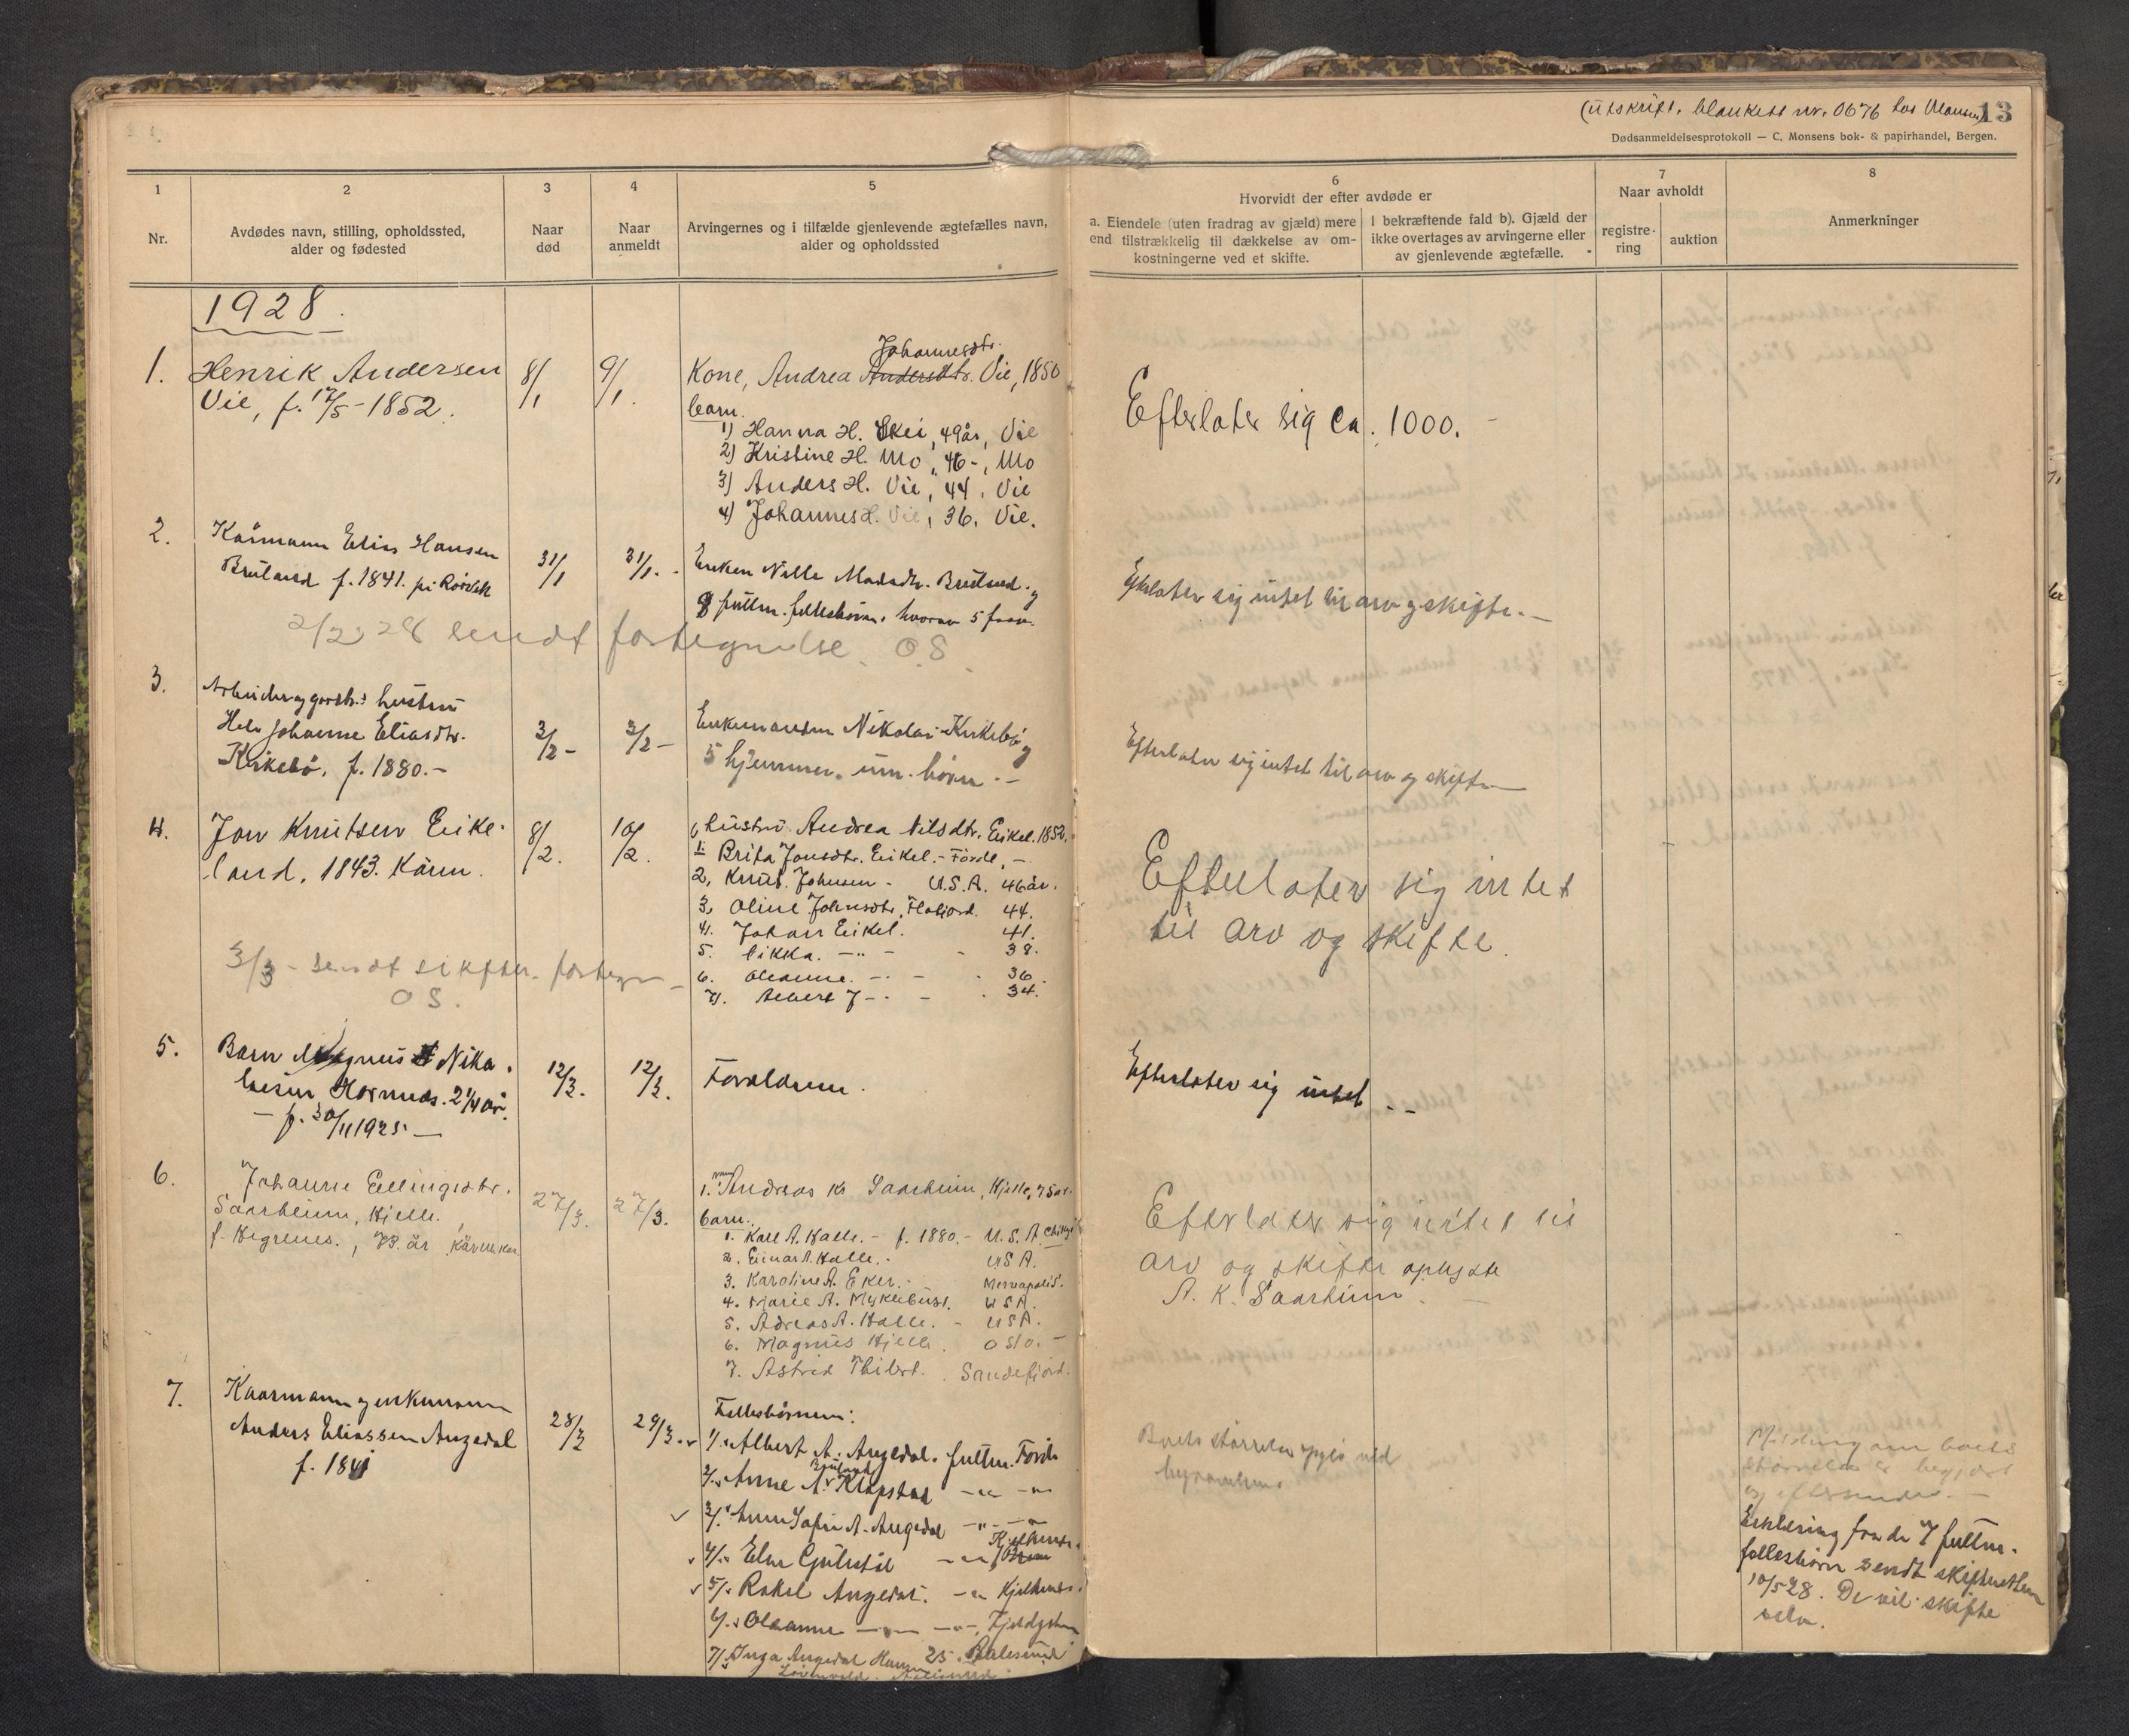 (utskrift. blankett nr. 0676 hos Monsen)
13
Dødsanmeldelsesprotokoll — C. Monsens bok- & papirhandel, Bergen.
1
Nr.
2
Avdødes navn, stilling, opholdssted,
alder og fødested
3
Naar
død
4
Naar
anmeldt
5
Arvingernes og i tilfælde gjenlevende ægtefælles navn,
alder og opholdssted
6
Hvorvidt der efter avdøde er
a. Eiendele (uten fradrag av gjæld) mere
end tilstrækkelig til dækkelse av om-
kostningerne ved et skifte.
I bekræftende fald b). Gjæld der
ikke overtages av arvingerne eller
av gjenlevende ægtefælle.
7
Naar avholdt
registre-
ring
auktion
8
Anmerkninger
1928.
1. Henrik Andersen
Vie, f. 17/5-1852.
8/1
9/1.
Johannesdtr.
Kone, Andrea Andersdtr. Vie, 1850
barn.
1) Hanna H. Skei, 49 år, Vie
2) Kristine H. Mo, 46 -, Mo
3) Anders H. Vie, 44, Vie
4) Johannes H. Vie, 36, Vie.
Efterlater sig ca. 1000.-
2. Kårmann Elias Hansen
Bruland f. 1841. på
31/1
31/1.-
Enken Nille Madsdtr. Bruland og
8 fullm. fellesbörn, hvorav 5 frav.
Efterlater sig intet til arv og skifte.-
2/2 28 sendt fortegnelse O.S.
3. Arbeider og gårdbr.s hustru
Johanne Eliasdtr.
Kirkebö, f. 1880.-
3/2-
3/2-
Enkemanden Nikolai Kirkebö og
5 hjemmev. um. börn.-
Efterlater sig intet til arv og skifte-
4. Jon Knutsen Eike-
land, 1843. Kårm.
8/2.
10/2.
hustru Andrea Nilsdtr. Eikel. 1852.
1. Brita Jonsdtr. Eikel.- Förde, -
2, Knut Johnsen - U.S.A. 46 år.
3, Oline Johnsdtr. 44.
4. Johan Eikel. 41.
5. Rikka. -"- - 38.
6. Oleanne. -"- - 36
7. Albert J -"- - 34.
Efterlater sig intet
til arv og skifte.
3/3 - sendt skifter. fortegn -
O S.
5. Barn Magnus Nika-
laisen 2 1/4 år.
- f. 30/11 1925 -
12/3.
12/3.
Foreldrene.
Efterlater sig intet.--
6. Johanne Ellingsdtr.
Saarheim, Hjelle.
f. Hegrenes., 73 år
27/3.
27/3.
1. Andreas K. Saarheim, Hjelle, 75 år.
barn.
1. Karl A. Halle.- f. 1880.- U.S.A.
2. Einar A. Halle.- USA.
3. Karoline A. Eker.-
4. Marie A. Myklebust. USA.
5. Adreas A. Halle. - USA.
6. Magnus Hjelle. Oslo.-
7. Astrid Thilert. Sandefjord.
Efterlater sig intet til
arv og skifte oplyste
A. K. Saarheim. -
7. Kaarmann og enkemann
Anders Eliassen Angedal
f. 1841
28/3
29/3.
Fellesbörnene:
1/. Albert A. Angedal. fullm. Förde
Bruland
2/. Anne A. Klopstad -"- -"-
3/. Anne Sofie A. Angedal -"- -"-
4/. Elen -"-
5/. Rakel Angedal. -"-
6/. Oleanne -"- -"-
7/. Inga Angedal 25.
Boets størrelse opgis ved
Melding om boets
størrelse er begjært
og eftersendes.-
Erklæring fra de 7 fullm.
fellesbörn sendt skifteretten
10/5 28. De vil skifte
selv.